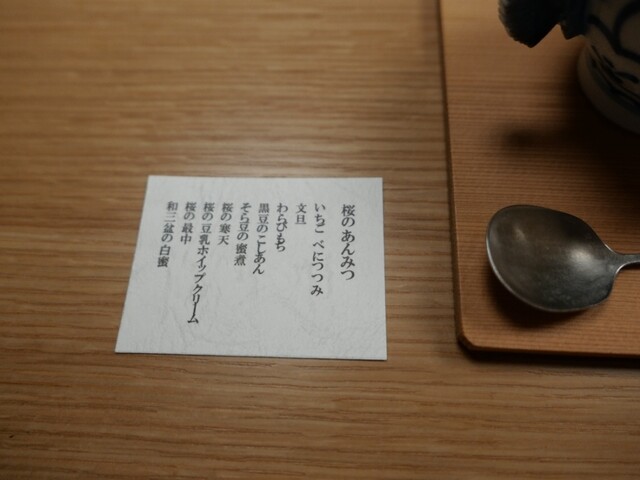 桜のあんみつ
いちご べにつつみ
文旦
わらびもち
黒豆のこしあん
そら豆の蜜煮
桜の寒天
桜の豆乳ホイップクリーム
桜の最中
和三盆の白蜜